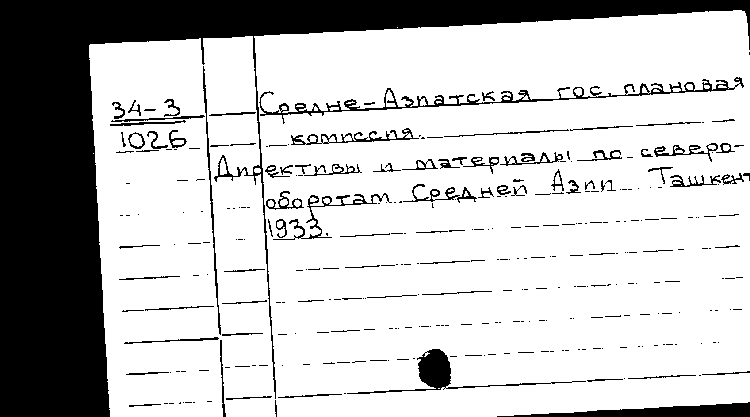 34-3
1026
Средне-Азиатская гос. плановая
комиссия.
Директивы и материалы по северо-
оборотам Средней Азии Ташкент
1933.